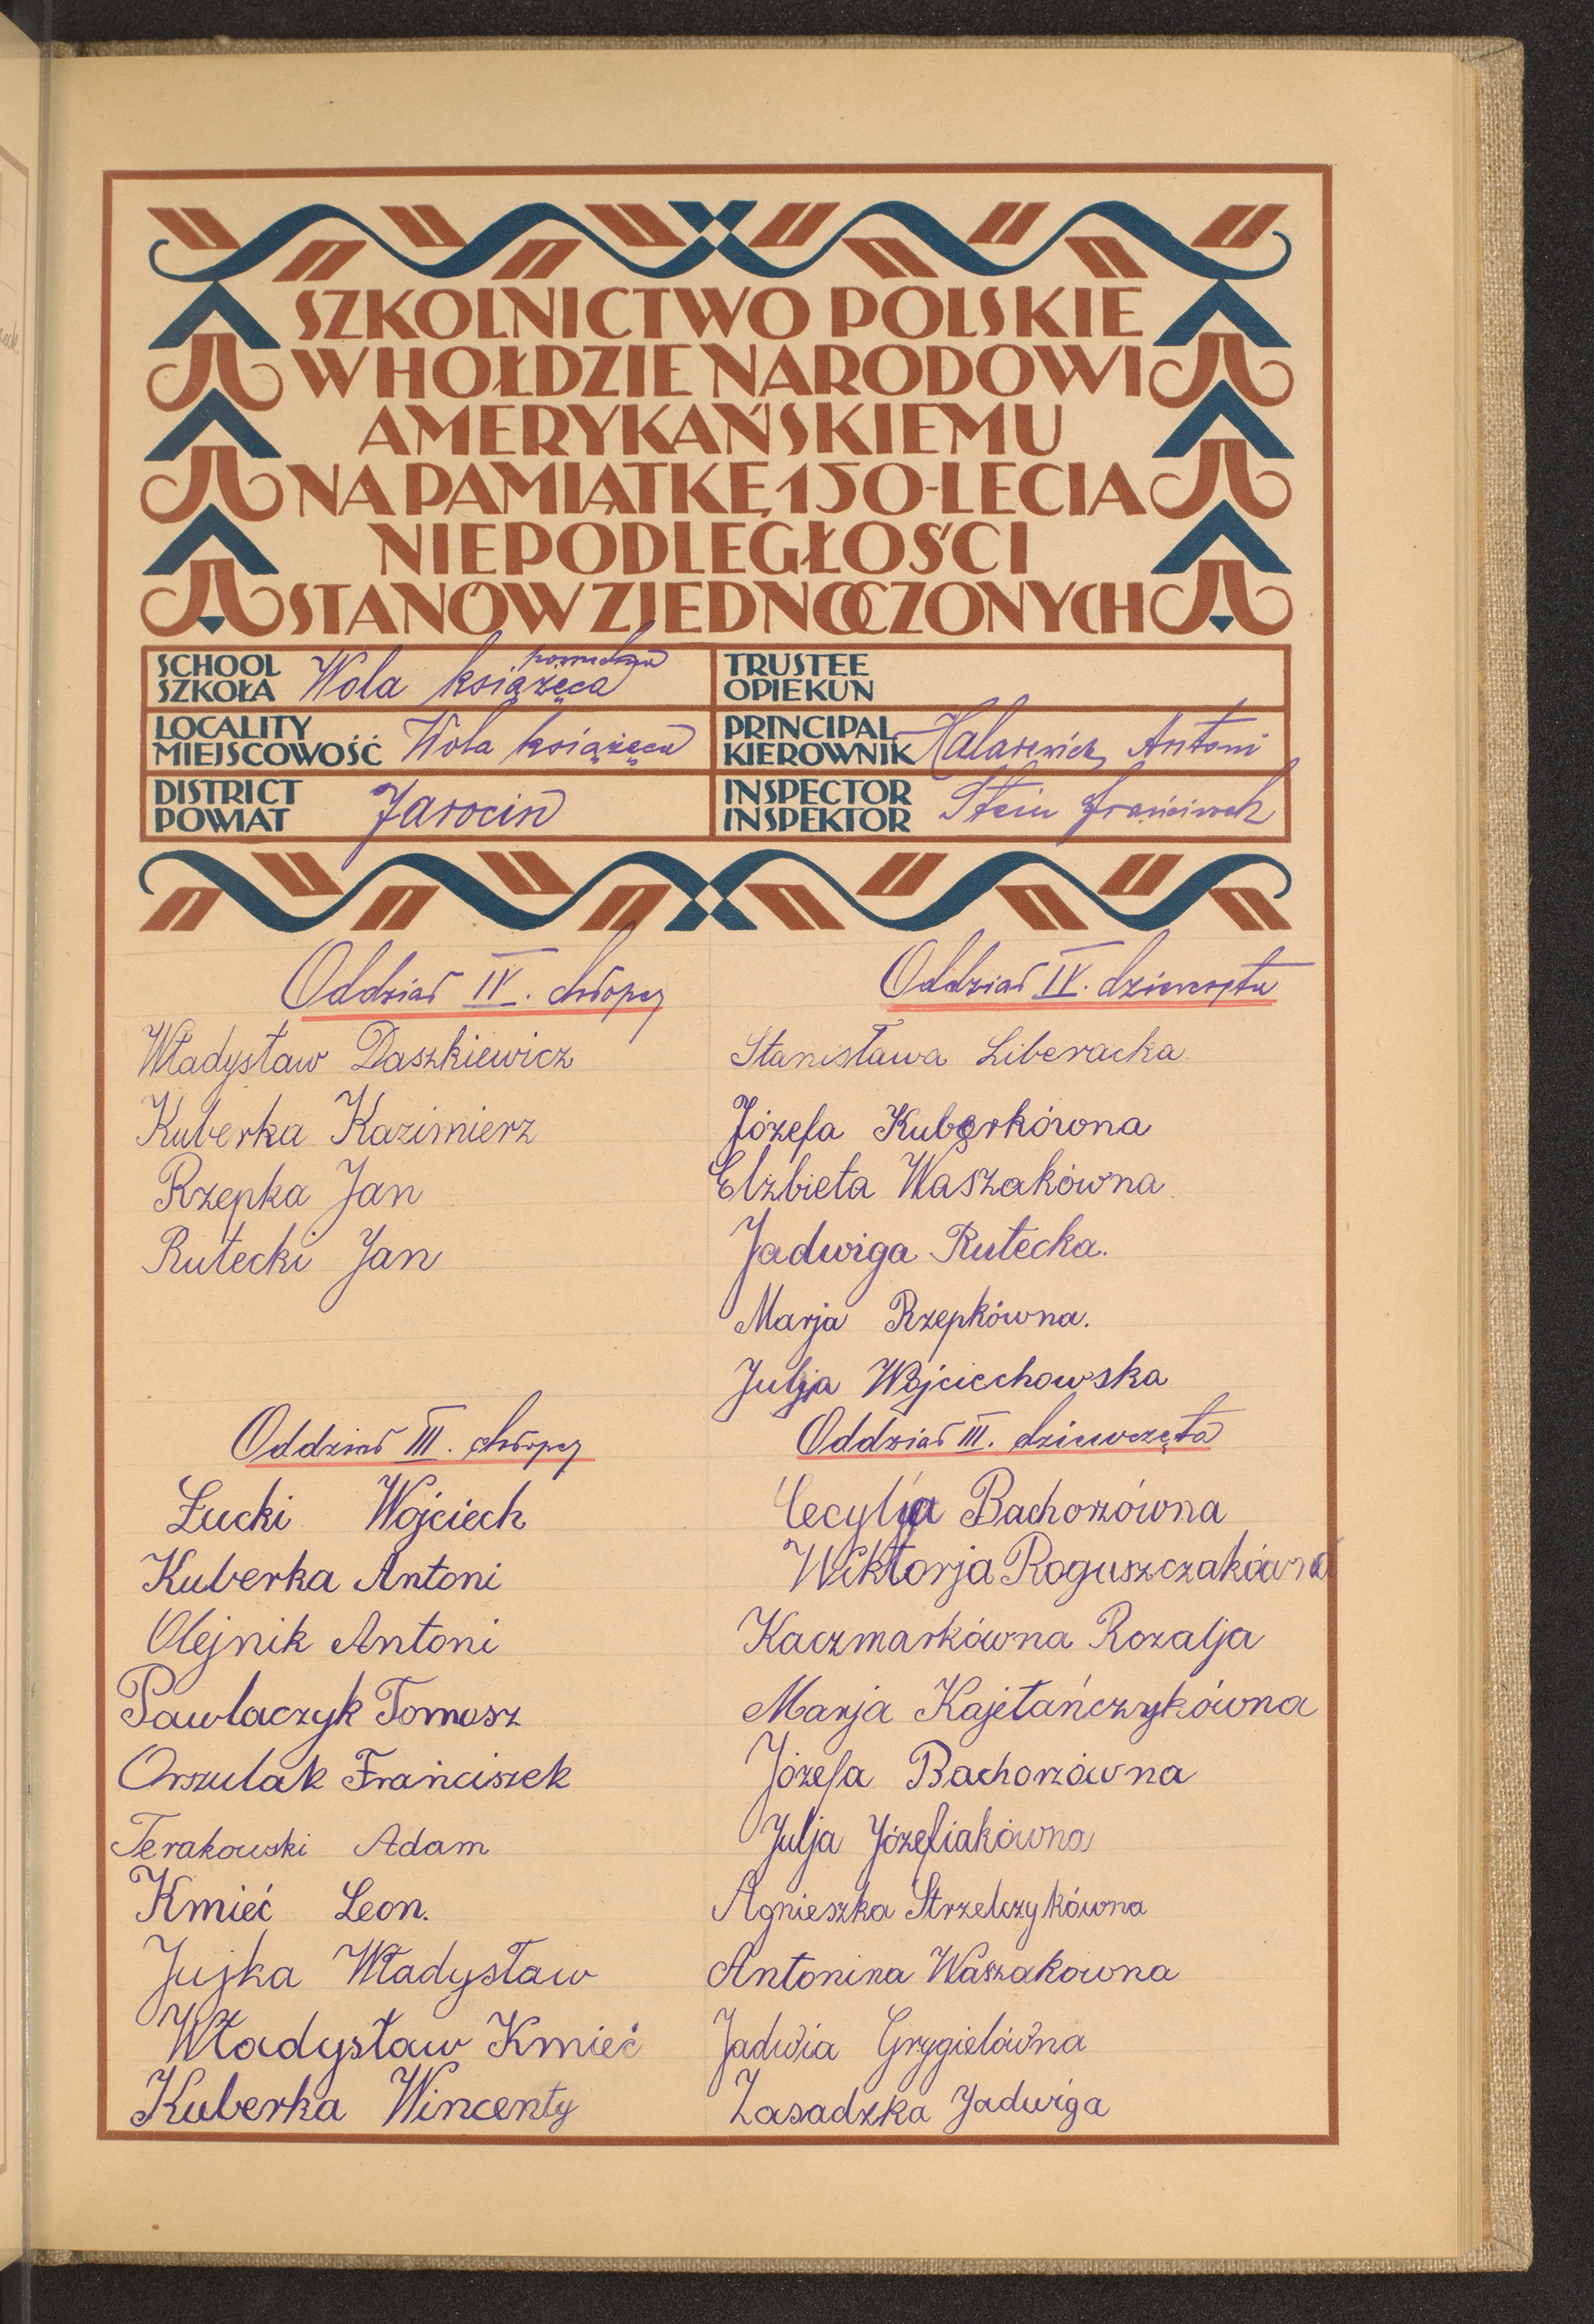 SZKOLNICTWO POLSKIE
W HOŁDZIE NARODOWI
AMERYKAŃSKIEMU
NA PAMIĄTKĘ 150-LECIA
NIEPODLEGŁOŚCI
STANÓW ZJEDNOCZONYCH
SCHOOL
SZKOŁA Wola książęca
TRUSTEE
OPIEKUN
LOCALITY
MIEJSCOWOŚĆ Wola książęca
PRINCIPAL
KIEROWNIK Antoni
DISTRICT
POWIAT Jarocin
INSPECTOR
INSPEKTOR Stein Franciszek
Oddział IV. chłopcy
Władysław Daszkiewicz
Kuberka Kazimierz
Rzepka Jan
Rutecki Jan
Oddział IV. dziewczęta
Stanisława Liberacka
Józefa Kuberkówna
Elżbieta Waszakówna
Jadwiga Rutecka.
Marja Rzepkówna.
Julja Wojciechowska
Oddział III. chłopcy
Łucki Wojciech
Kuberka Antoni
Olejnik Antoni
Pawlaczyk Tomasz
Orszulak Frańciszek
Terakowski Adam
Kmieć Leon.
Jujka Władysław
Władysław Kmieć
Kuberka Wincenty
Oddział III. dziewczęta
Cecylja Bachorzówna
Wiktorja Roguszczakówna
Kaczmarkówna Rozalja
Marja Kajetańczykówna
Józefa Bachorzówna
Julja Józefiakówna
Agnieszka Strzelczykówna
Antonina Waszakowna
Jadwia Grygielówna
Zasadzka Jadwiga